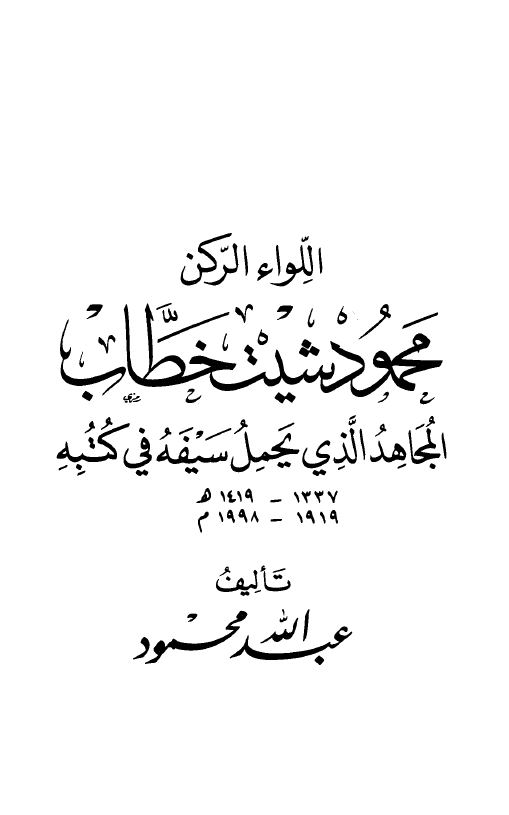 اللِّواء الرّكن
مَحمُود شيت خَطَّاب
المُجَاهِدُ الَّذِي يَحمِلُ سَيْفَهُ في كُتُبِهِ
١٣٣٧ - ١٤١٩ هـ
١٩١٩ - ١٩٩٨ م
تَأليفُ
عبد الله محمود